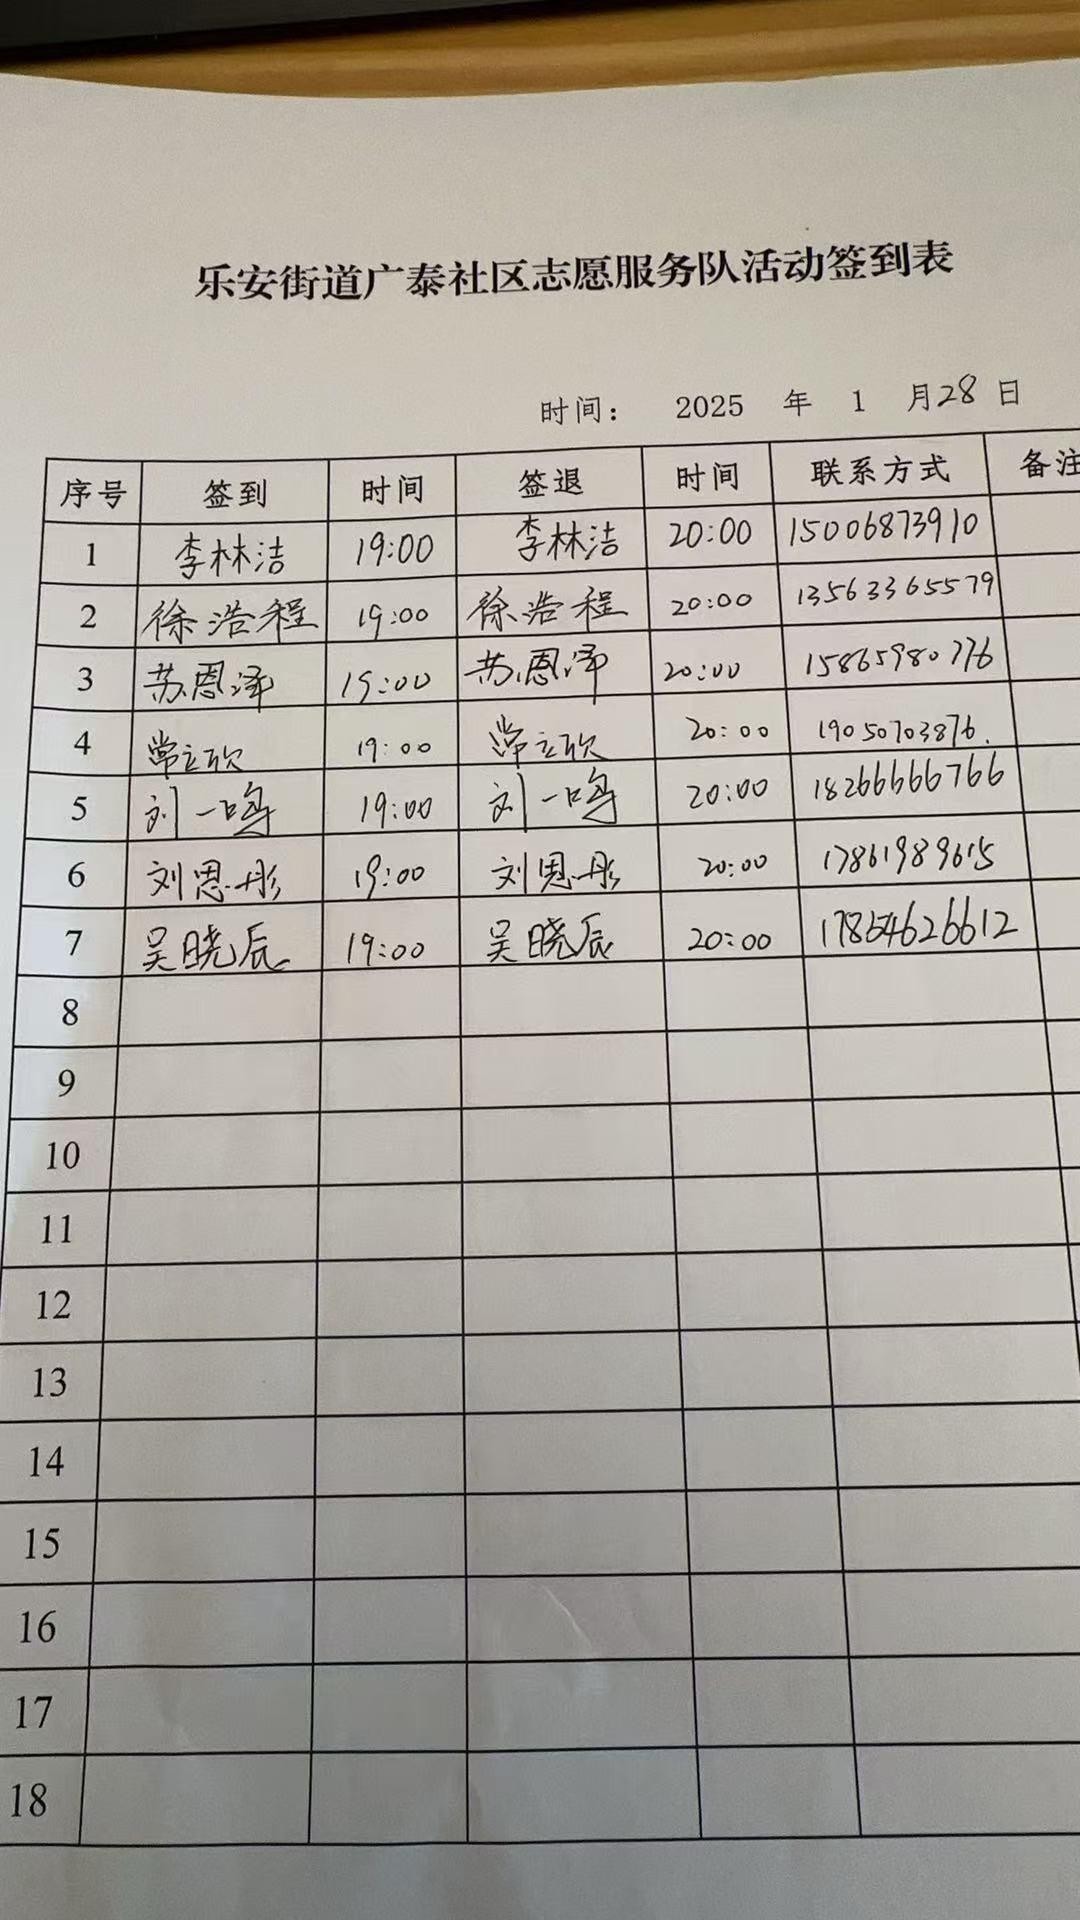 乐安街道广泰社区志愿服务队活动签到表
时间： 2025 年 1 月28 日
序号 签到 时间 签退 时间 联系方式 备注
1 李林洁 19:00 李林洁 20:00 15006873910
2 徐浩程 19:00 徐浩程 20:00 13563365579
3 苏恩泽 19:00 苏恩泽 20:00 15865980776
4 常立欣 19:00 常立欣 20:00 19050703876.
5 刘一鸣 19:00 刘一鸣 20:00 18266666766
6 刘思彤 19:00 刘思彤 20:00 17861989615
7 吴晓辰 19:00 吴晓辰 20:00 17854626612
8
9
10
11
12
13
14
15
16
17
18